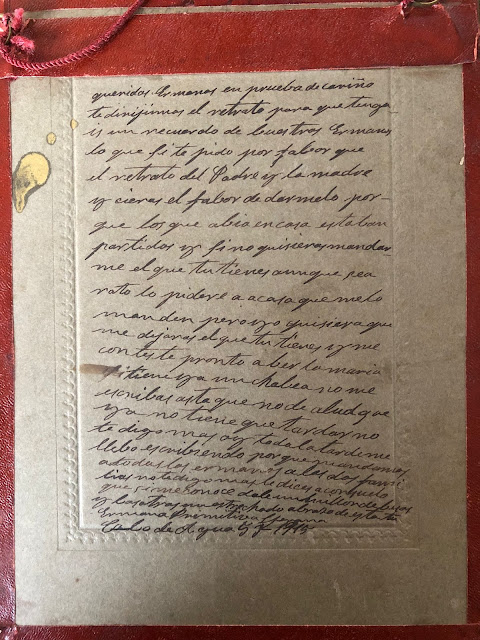 queridos Ermanos en prueba de cariño
te dirijimos el retrato para que tenga
is un recuerdo de buestros Ermanos
lo que si te pido por fabor que
el retrato del Padre y la madre
y cieras el fabor de darmelo por-
que los que abia en casa estaban
partidos y si no quisieras mandar
me el que tu tienes aunque sea
roto lo pidere a acasa que melo
manden pero yo quisiera que
me dejaras el que tu tienes y me
conteste pronto a ber la maria
si tiene ya un no me
escribas asta que no de alud que
ya no tiene que tardar no
te digo mas oy toda la tarde me
llebo escribiendo porque mandamos
a todas los ermanos a las dos fami
lias no te digo mas le dices a consuelo
que si me conoce dale un millon de besos
y bosotros un abrazo de esta tu
Ermana
Cabo de Agua 1915